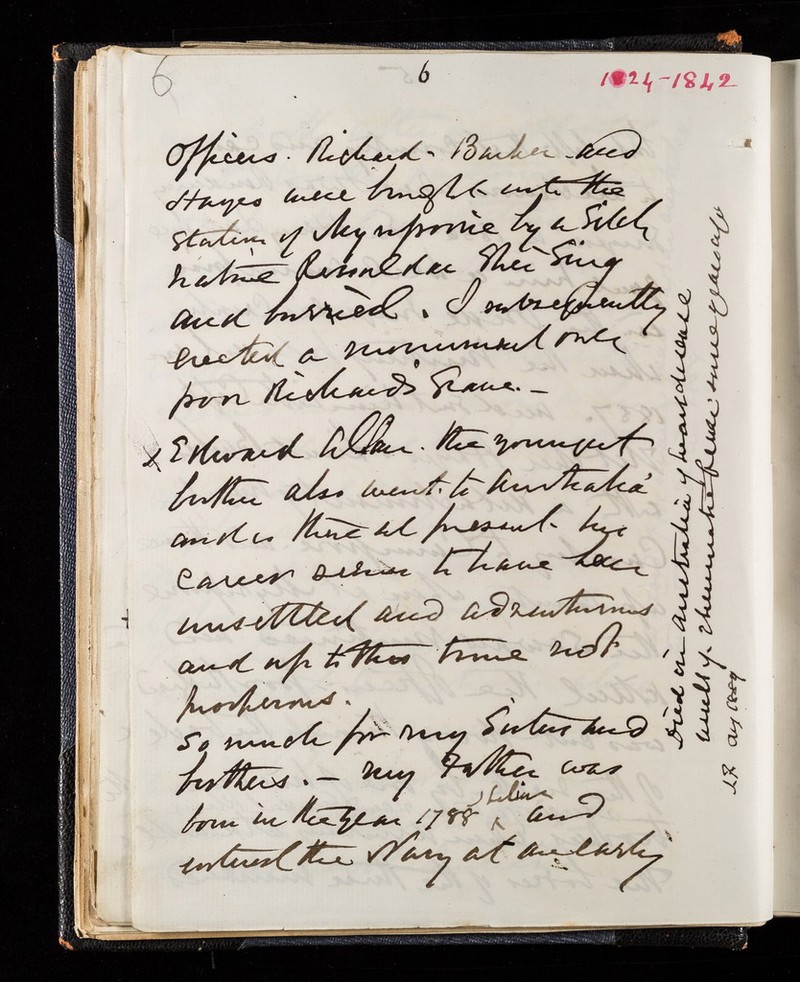 6
6
1824-1842
Officers. Richard - Barber and
Hayes were brought into the
Station of Mynpoorie by a Sikh
native Ressaldar Sher Sing
and burried. I subsequently
erected a monument over
poor Richard's Grave. -
x Edward Allan. the youngest
brother also went to Australia
and is there at present. his
career seems to have been
unsettled and adventurous
and up to this time not
prosperous.
So much for my Sisters and
brothers. - my Father was
born in the year 1788 I believe and
entered the Navy at an early
Died in Australia of heart disease
rheumatic fever some years ago